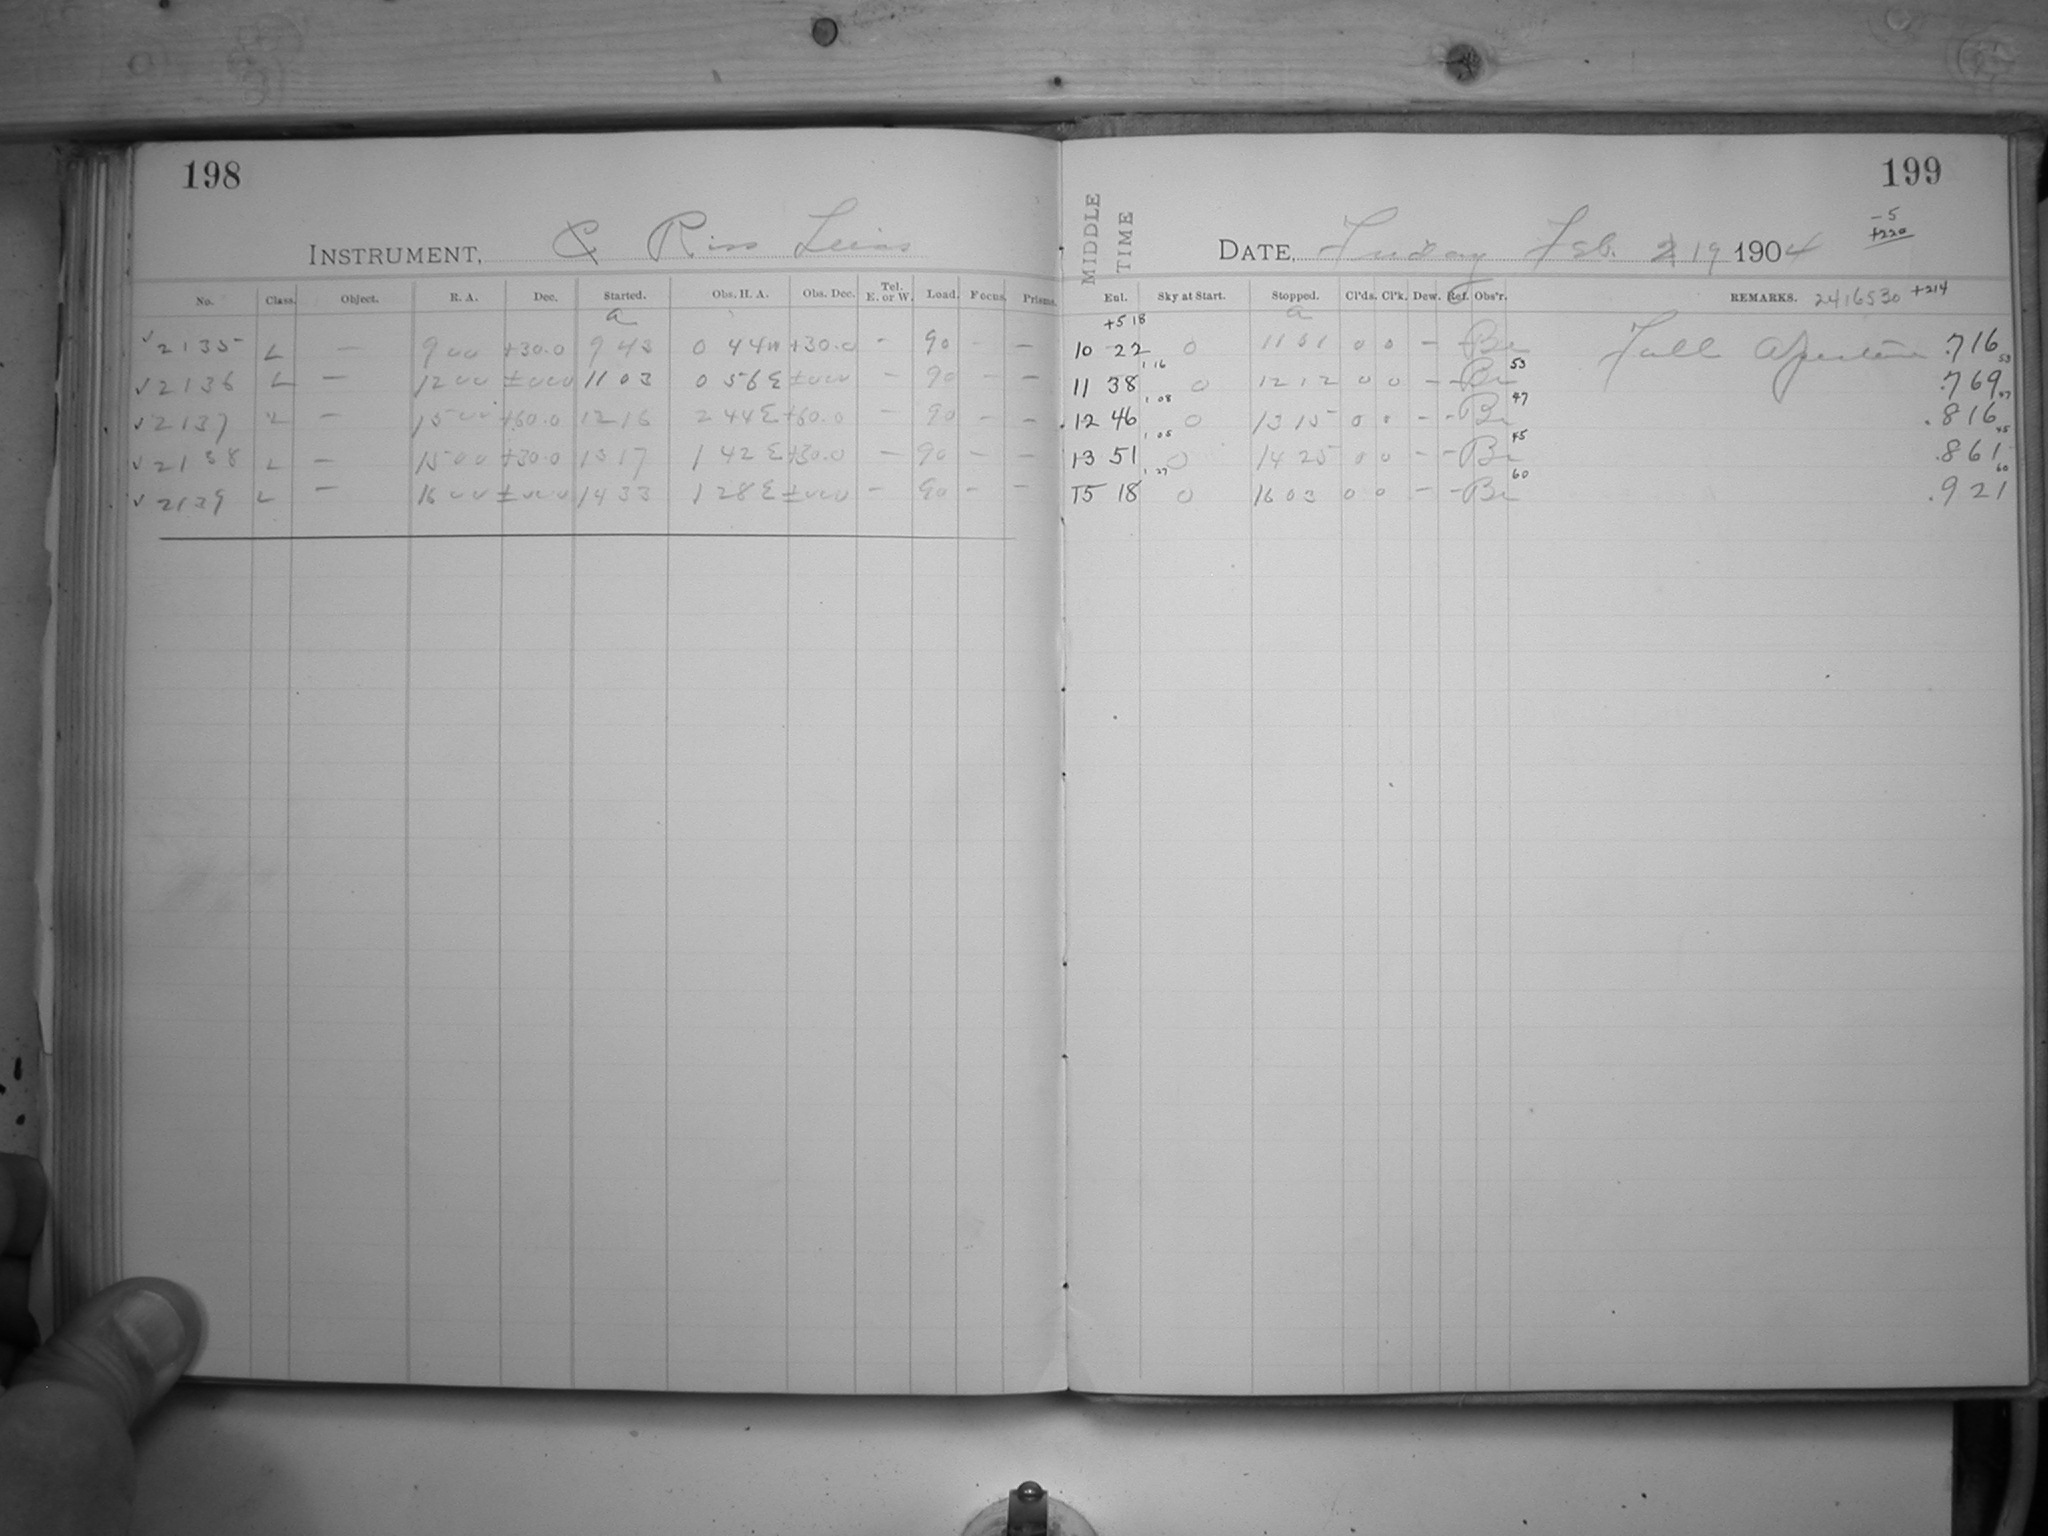 198
INSTRUMENT, & Ross Lens
No. Class. Object. R. A. Dec. Started. Obs. H. A. Obs. Dec. Tel. E. or W. Load. Focus. Prisms.
a
✓ 2135 L — 9 00 +30.0 9 43 0 44W +30.0 - 90 - —
✓ 2136 L — 12 00 ±000 11 03 0 56E ±000 - 90 - —
✓ 2137 L — 15 00 +60.0 12 16 2 44E +60.0 - 90 - —
✓ 2138 L — 15 00 +30.0 13 17 1 42E +30.0 - 90 - —
✓ 2139 L — 16 00 ±000 14 33 1 28E ±000 - 90 - —
199
-5
+220
MIDDLE TIME
DATE, Friday Feb. 19 1904
Enl. Sky at Start. Stopped. Cl'ds. Cl'k. Dew. Ref. Obs'r. REMARKS. 2416530 +214
+5 18 a
10 22 0 11 01 0 0 - Br Full Aperture .716
1 16 53 53
11 38 0 12 12 0 0 - - Br .769
1 08 47 47
12 46 0 13 15 0 0 - - Br .816
1 05 45 45
13 51 0 14 25 0 0 - - Br .861
1 27 60 60
15 18 0 16 03 0 0 - - Br .921